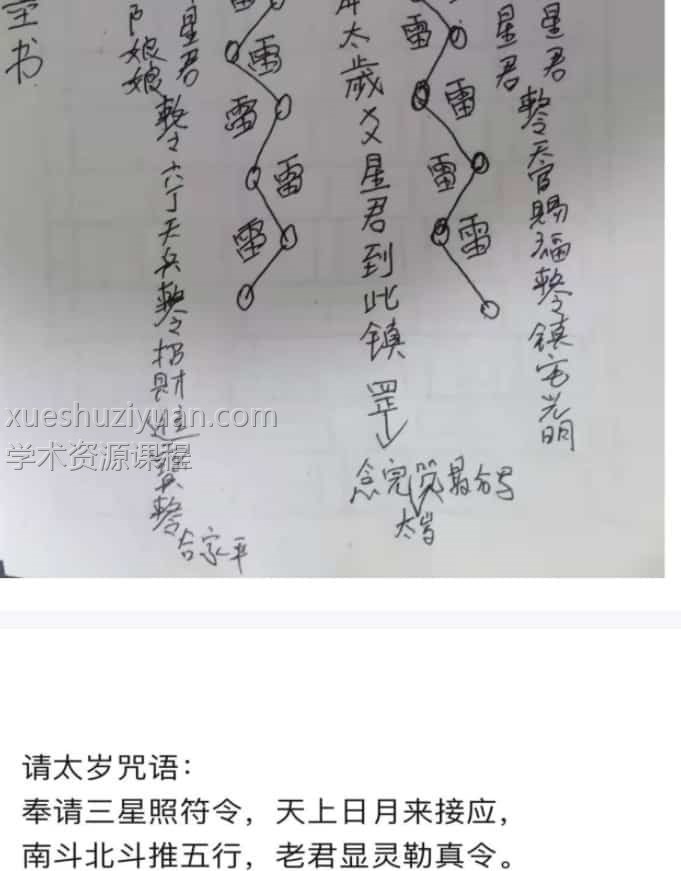 星君
星君
敕令天官賜福敕令镇宅光明
雷
雷
雷
雷
太歲爻星君到此镇
罡
念完咒最后写
太岁
雷
雷
雷
雷
雷
星君
娘娘
敕令六丁天兵敕令招財進寳敕令
合家平
书
xueshuziyuan.com
学术资源课程
请太岁咒语：
奉请三星照符令，天上日月来接应，
南斗北斗推五行，老君显灵勒真令。